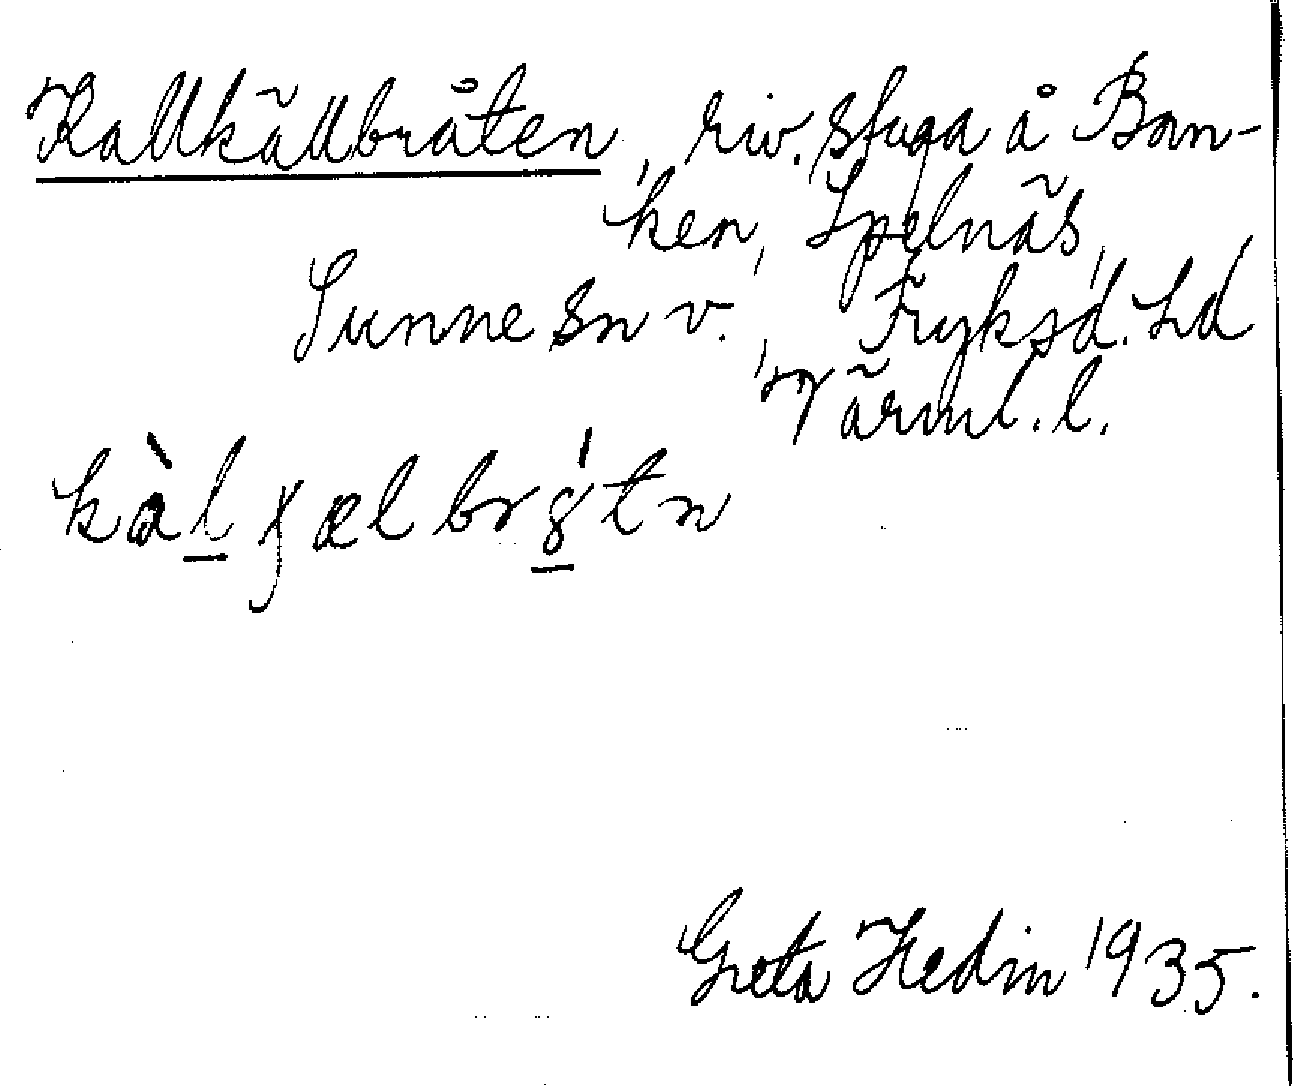 Kallkällbråten, riv. stuga å Ban-
ken, Spelnäs,
Sunne sn v., Fryksd. hd
Värml. l.
kàl̠ ɣæl br8̠́tn
Greta Hedin 1935.